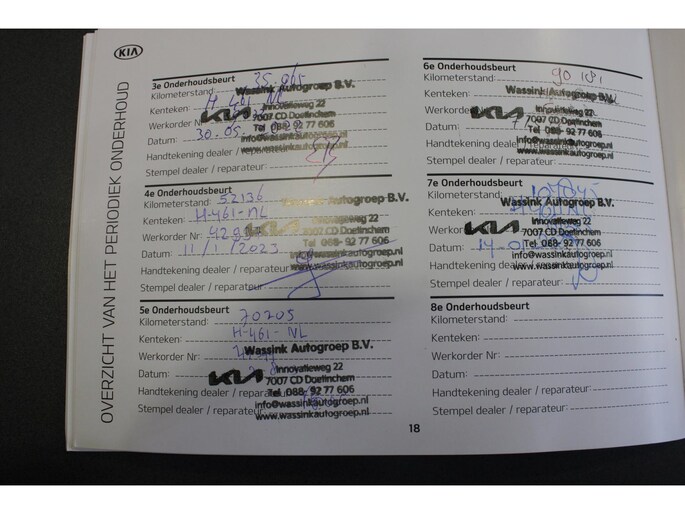 KIA
OVERZICHT VAN HET PERIODIEK ONDERHOUD
3e Onderhoudsbeurt
Kilometerstand: 35.965
Kenteken: H-461-NL
Werkorder Nr:
Datum: 30-05-
Handtekening dealer / reparateur:
Stempel dealer / reparateur:
Wassink Autogroep B.V.
KIA
Innovatieweg 22
7007 CD Doetinchem
Tel 088- 92 77 606
info@wassinkautogroep.nl
www.wassinkautogroep.nl
4e Onderhoudsbeurt
Kilometerstand: 52136
Kenteken: H-461-NL
Werkorder Nr:
Datum: 11/1/2023
Handtekening dealer / reparateur:
Stempel dealer / reparateur:
Wassink Autogroep B.V.
KIA
Innovatieweg 22
7007 CD Doetinchem
Tel 088- 92 77 606
info@wassinkautogroep.nl
www.wassinkautogroep.nl
5e Onderhoudsbeurt
Kilometerstand: 70205
Kenteken: H-461-NL
Werkorder Nr:
Datum:
Handtekening dealer / reparateur:
Stempel dealer / reparateur:
Wassink Autogroep B.V.
KIA
Innovatieweg 22
7007 CD Doetinchem
Tel 088- 92 77 606
info@wassinkautogroep.nl
www.wassinkautogroep.nl
6e Onderhoudsbeurt
Kilometerstand:
Kenteken:
Werkorder
Datum:
Handtekening dealer / reparateur:
Stempel dealer / reparateur:
Wassink Autogroep B.V.
KIA
Innovatieweg 22
7007 CD Doetinchem
Tel 088- 92 77 606
info@wassinkautogroep.nl
www.wassinkautogroep.nl
7e Onderhoudsbeurt
Kilometerstand:
Kenteken:
Datum:
Handtekening dealer / reparateur:
Stempel dealer / reparateur:
Wassink Autogroep B.V.
KIA
Innovatieweg 22
7007 CD Doetinchem
Tel 088- 92 77 606
info@wassinkautogroep.nl
www.wassinkautogroep.nl
8e Onderhoudsbeurt
Kilometerstand:
Kenteken:
Werkorder Nr:
Datum:
Handtekening dealer / reparateur:
Stempel dealer / reparateur:
18